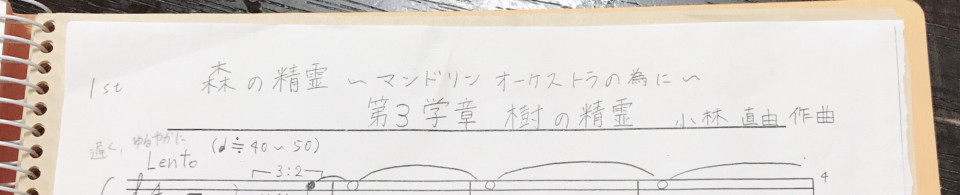 1st 森の精霊 ～マンドリン オーケストラの為に～
第3学章 樹の精霊 小林 直由 作曲
遅く、ゆるやかに
Lento (♩≒40～50)
3:2
4